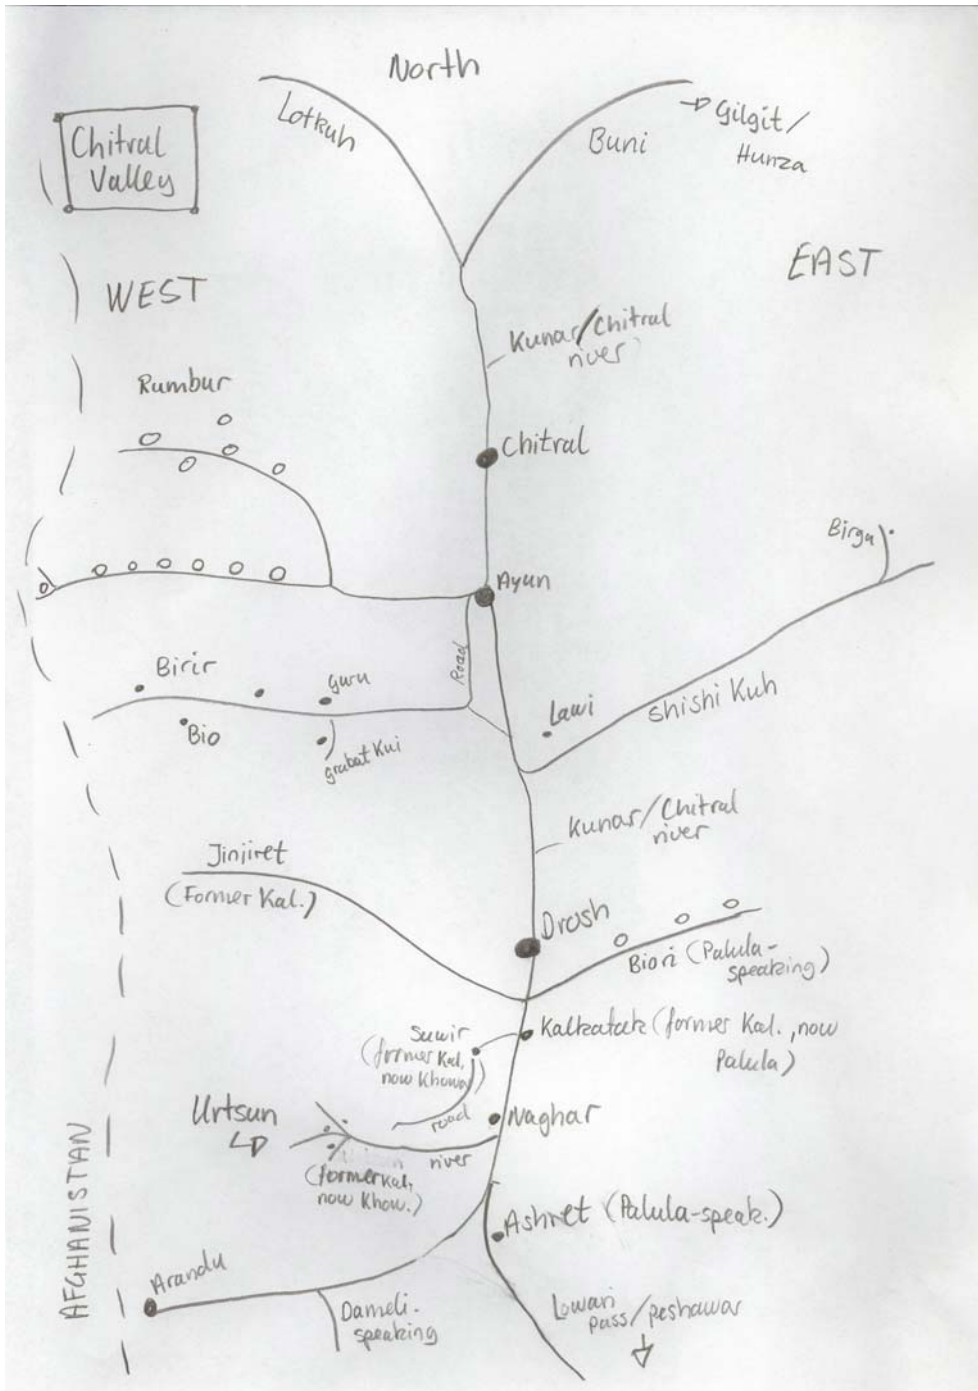 North
Lotkuh
Buni
Gilgit/
Hunza
Chitral
Valley
WEST
EAST
Kunar/Chitral
river
Rumbur
Chitral
Birga
Ayun
Road
Birir
guru
Bio
grabat Kui
Lawi
Shishi Kuh
Kunar/Chitral
river
Jinjiret
(Former Kal.)
Drosh
Biori (Palula-
speaking)
Suwir
(former Kal,
now Khowar)
Kalkatak (former Kal., now
Palula)
Urtsun
road
Naghar
river
(former Kal,
now Khow.)
Ashret (Palula-speak.)
AFGHANISTAN
Arandu
Dameli-
speaking
Lowari
pass/peshawar